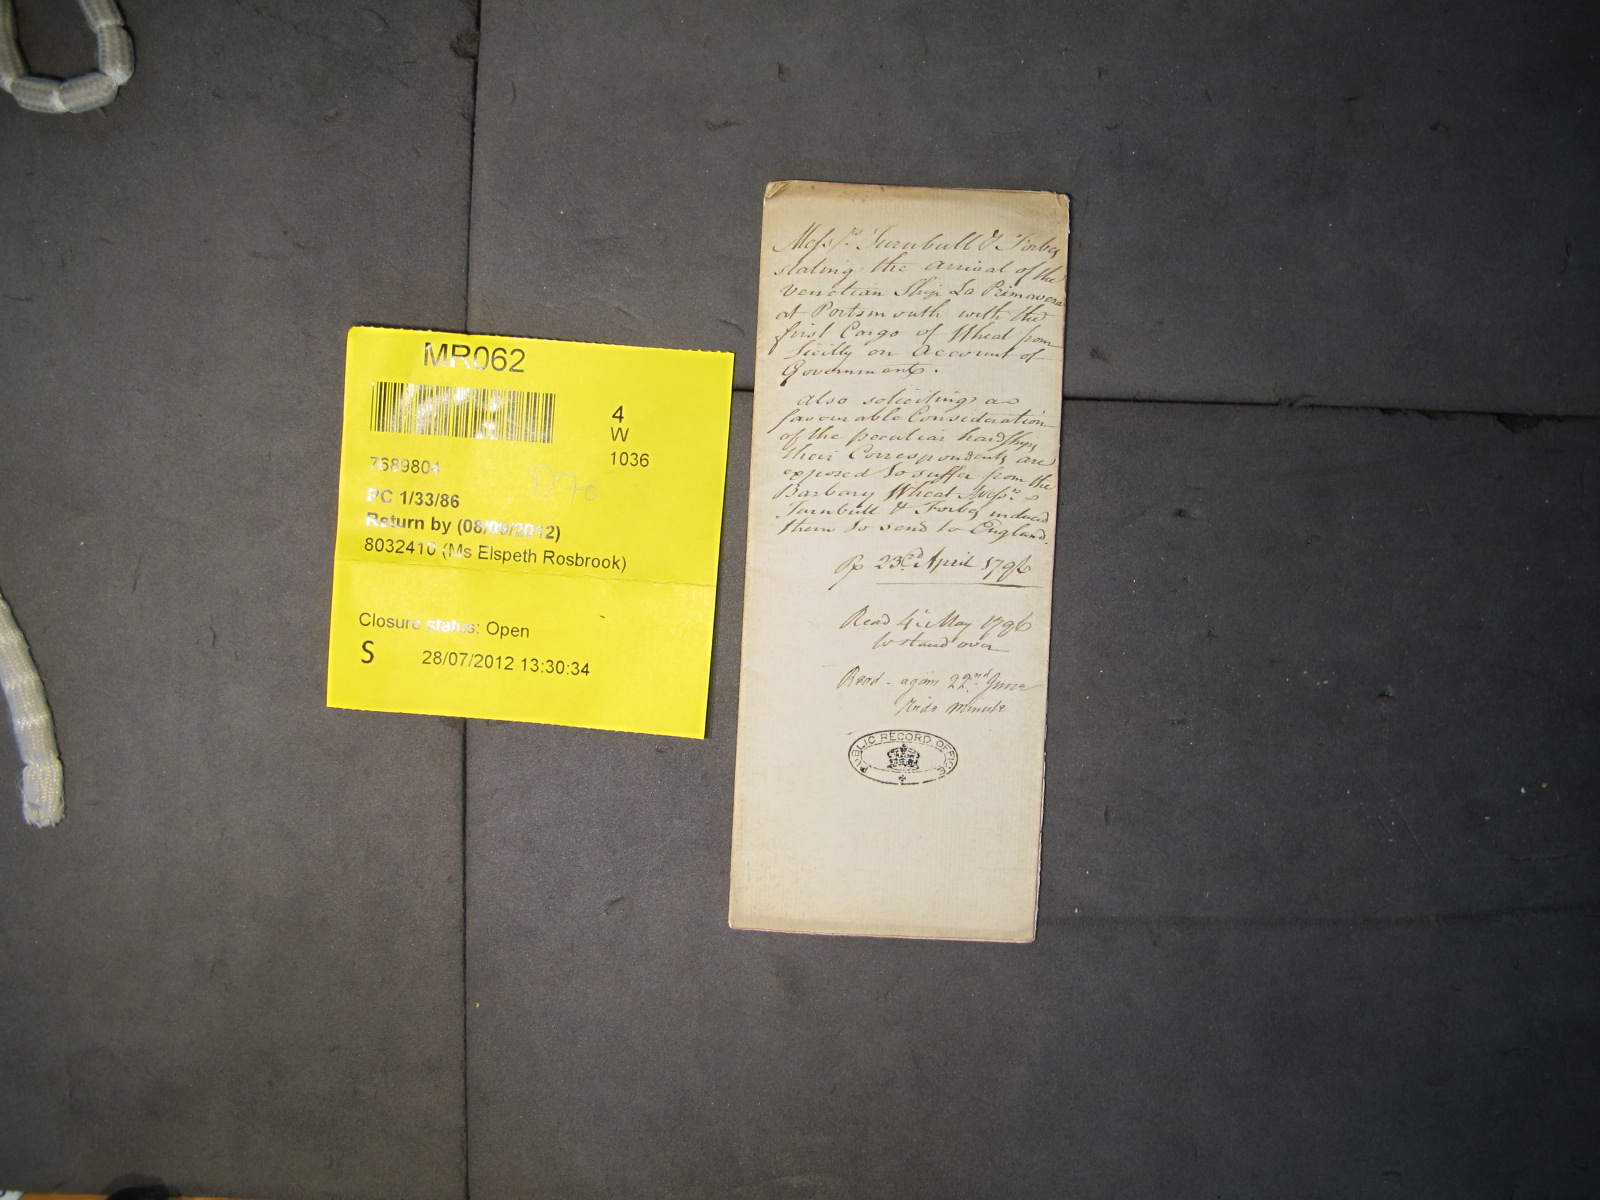 MR062
4
W
1036
7689804
PC 1/33/86
Return by (08/09/2012)
8032410 (Ms Elspeth Rosbrook)
Closure status: Open
S 28/07/2012 13:30:34
Mess.rs Turnbull & Forbes
stating the arrival of the
Venetian Ship La Primavera
at Portsmouth with the
first Cargo of Wheat from
Sicilly on Account of
Government.
also soliciting a
favourable Consideration
of the peculiar hardships
their Correspondents are
exposed to suffer from the
Barbary Wheat Mess.rs
Turnbull & Forbes induced
them to send to England.
23.d April 1796
Read 4th May 1796
to stand over
Read again 22.nd June
Vide Minute
PUBLIC RECORD OFFICE